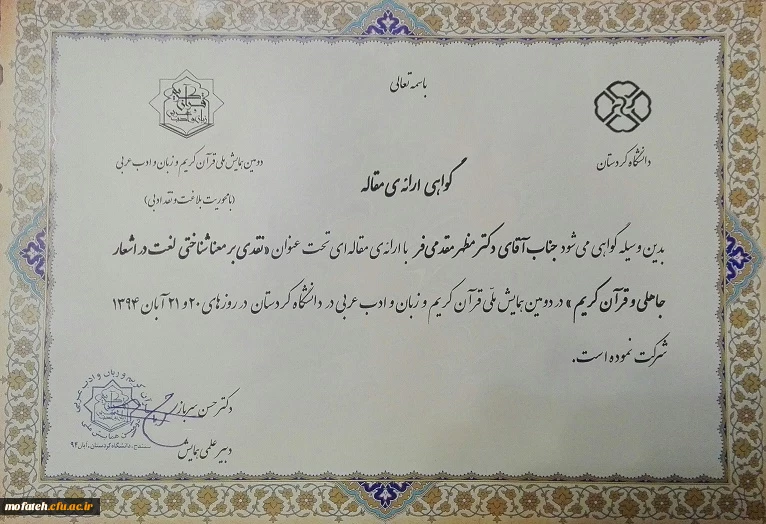 باسمه تعالی
دانشگاه کردستان
دومین همایش ملی قرآن کریم و زبان و ادب عربی
(با محوریت بلاغت و نقد ادبی)
گواهی ارائه‌ی مقاله
بدین وسیله گواهی می‌شود جناب آقای دکتر مظهر مقدمی‌فر با ارائه‌ی مقاله‌ای تحت عنوان «نقدی بر معناشناختی لغت در اشعار
جاهلی و قرآن کریم» در دومین همایش ملّی قرآن کریم و زبان و ادب عربی در دانشگاه کردستان در روزهای ۲۰ و ۲۱ آبان ۱۳۹۴
شرکت نموده است.
دکتر حسن سرباز
دبیر علمی همایش
سنندج، دانشگاه کردستان، آبان ۹۴
mofateh.cfu.ac.ir